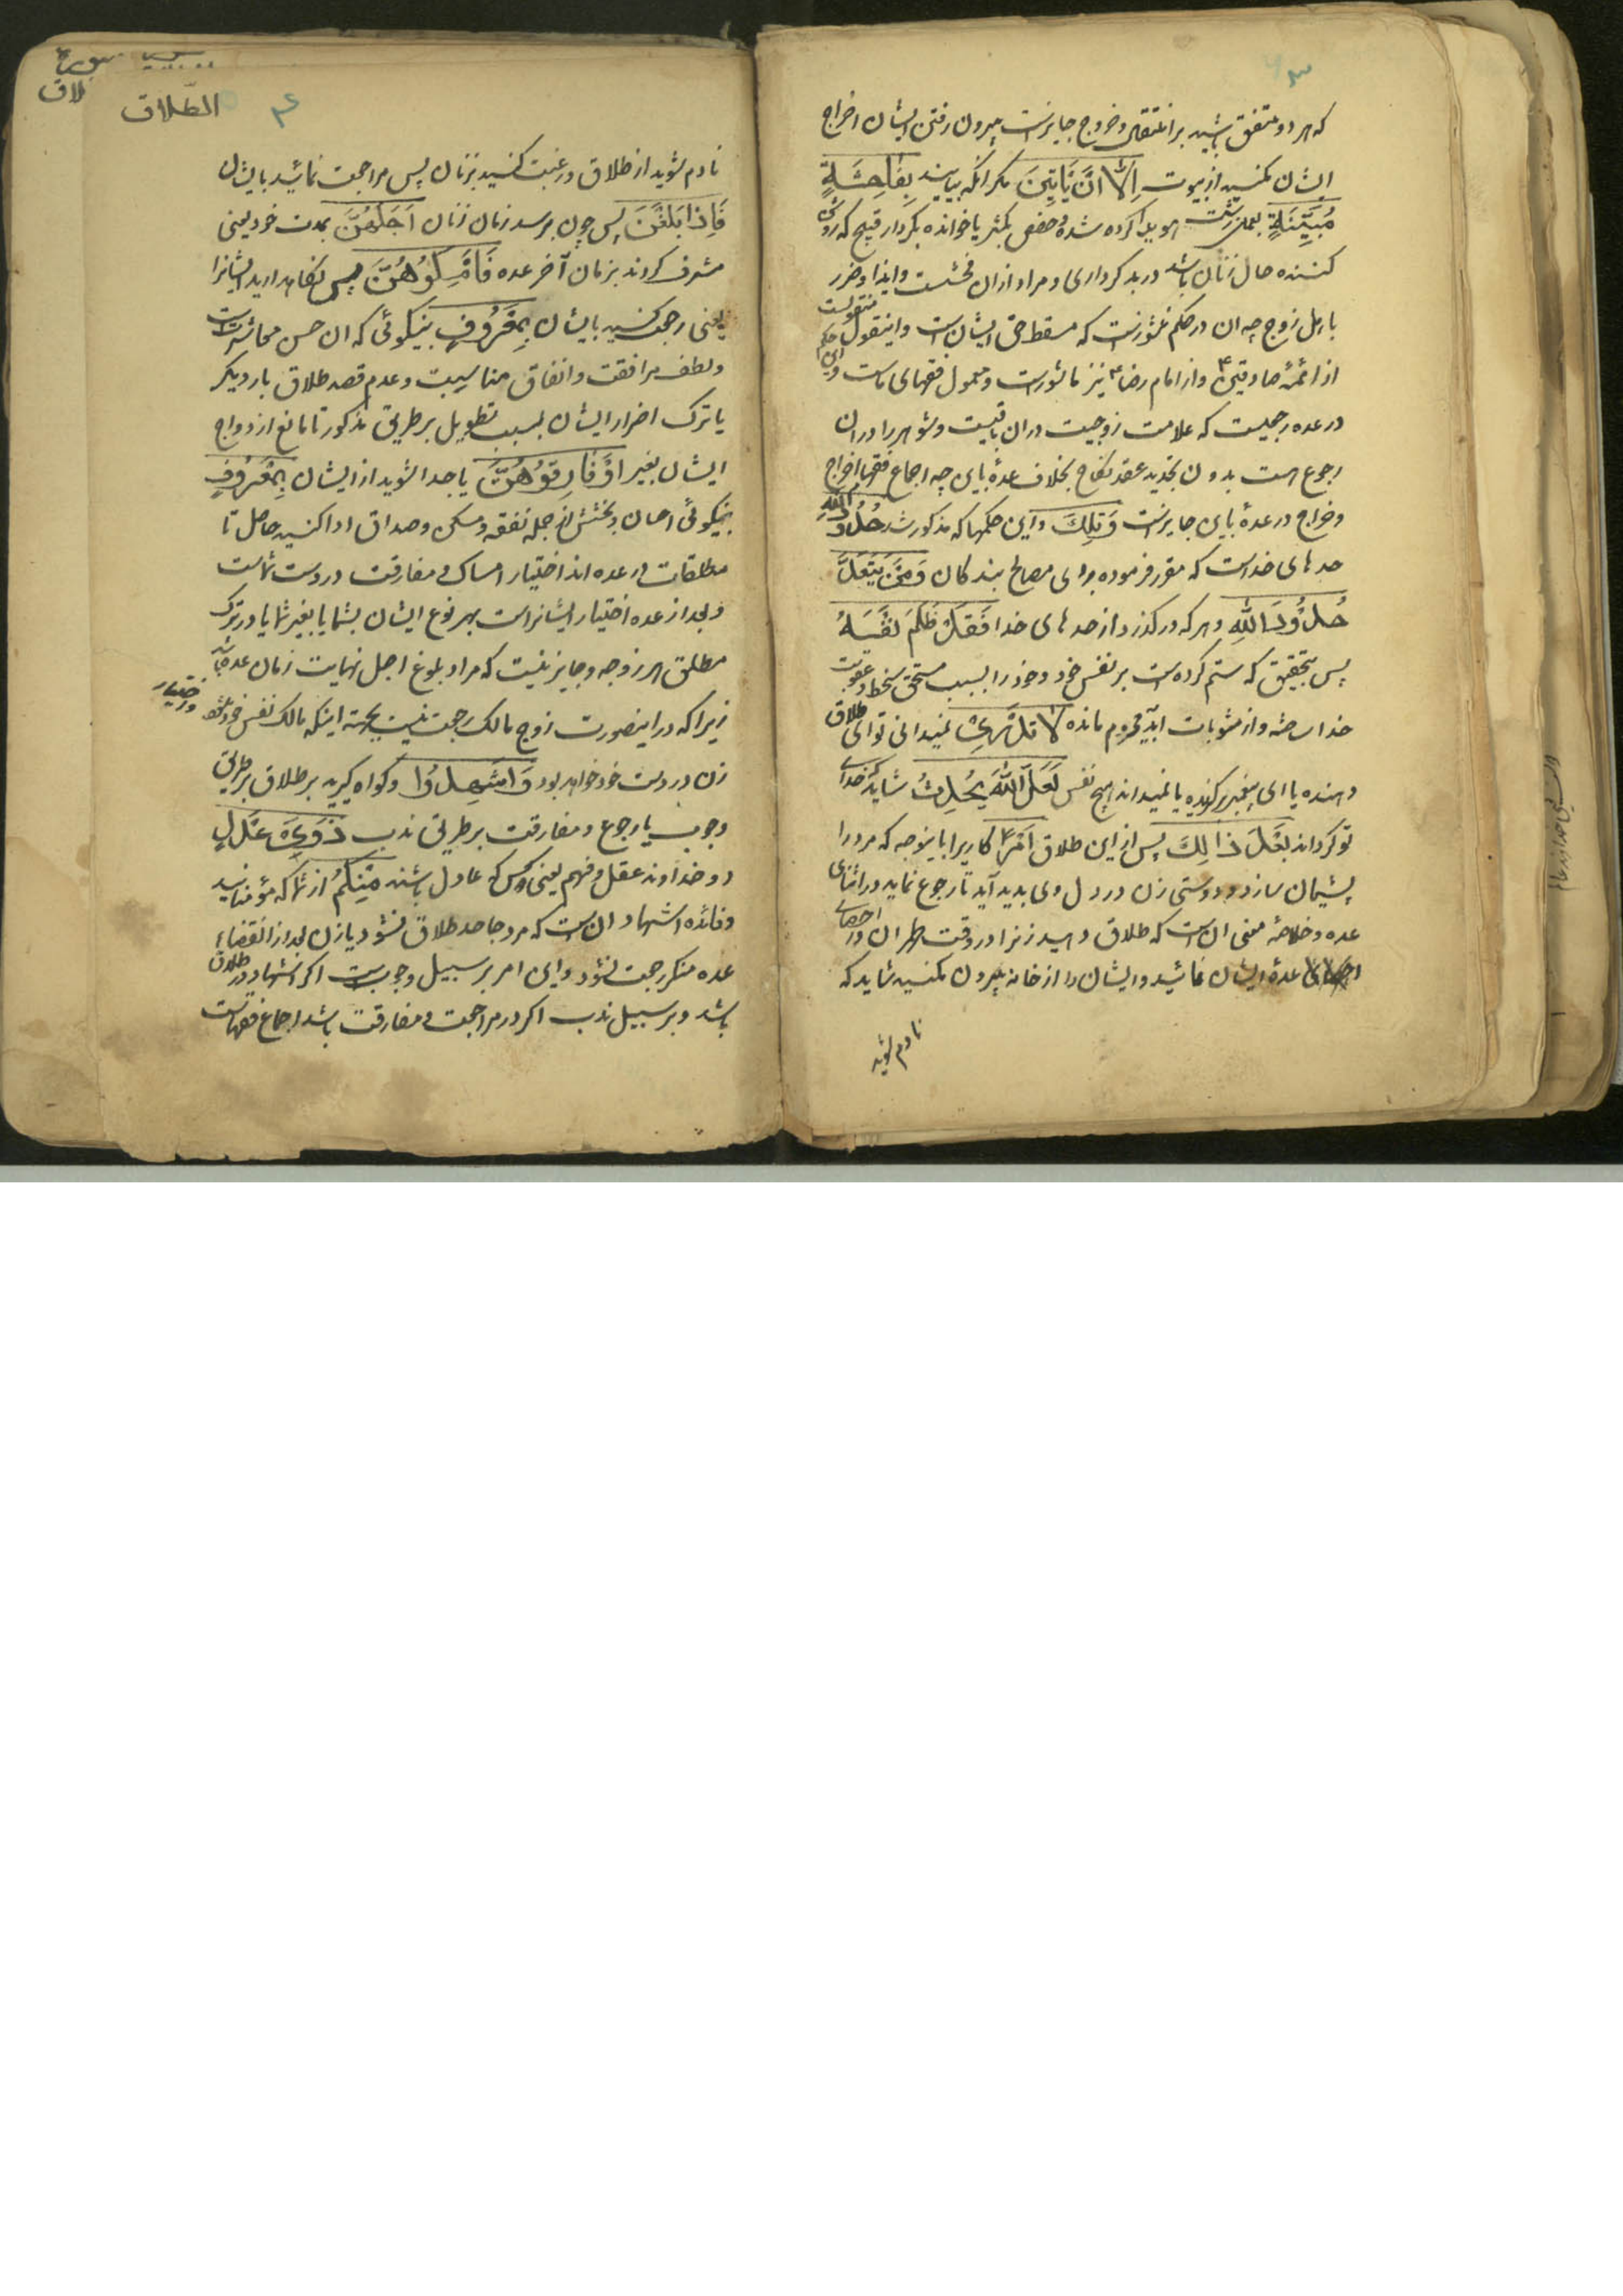 که هر دو متفق باشید بر انتقال و خروج جایزست بیرون رفتن ایشان اخراج
ایشان مکنید از بیوت اِلّا اَنْ یَأتِینَ مکر انکه بیایند بِفاحِشَةٍ
مُبَیِّنَةٍ بعملی زشت هویدا کرده شده و حفص بکسر یا خوانده بکردار قبیح که روشن
کننده حال زنان باشد در بد کرداری و مراد ازان فحشست و ایذا و ضرر
باهل زوج چه ان در حکم نشوزست که مسقط حق ایشان است و اینقول منقولست
از ائمهٔ صادقین ع و از امام رضا ع نیز ماثورست و معمول فقهای ماست و این حکم
در عده رجعیست که علامت زوجیت دران باقیست و شوهر را دران
رجوع هست بدون تجدید عقد نکاح بخلاف عدهٔ باین چه اجماع فقها اخراج
و خراج در عدهٔ باین جایزست وَتِلْكَ و این حکمها که مذکور شد حُدُودُ اللّٰهِ
حد های خداست که مقرر فرموده برای مصالح بندکان وَمَنْ یَتَعَدَّ
حُدُودَ اللّٰهِ و هر که در کذرد از حد های خدا فَقَدْ ظَلَمَ نَفْسَهُ
پس بتحقیق که ستم کرده ست بر نفس خود و خود را بسبب مستحق سخط و عقوبت
خدا ساخته و از مثوبات ابدیه محروم مانده لا تَدْرِی نمیدانی تو ای طلاق
دهنده یا ای پیغمبر برکزیده یا نمیداند هیچ نفس لَعَلَّ اللّٰهَ یُحْدِثُ شاید که خدای
تو کرداند بَعْدَ ذٰلِكَ پس از این طلاق اَمْرًا کاریرا باینوجه که مرد را
پشیمان سازد و دوستی زن در دل وی پدید آید تا رجوع نماید در اثنای
عده و خلاصهٔ معنی ان است که طلاق دهید زنرا در وقت طهر ان و در احصای
عدهٔ ایشان نمائید و ایشان را از خانه بیرون مکنید شاید که
نادم شوید
الطّلاق
نادم شوید از طلاق و رغبت کنید بزنان پس مراجعت نمائید بایشان
فَاِذا بَلَغْنَ پس چون برسد زمان زنان اَجَلَهُنَّ بمدت خود یعنی
مشرف کردند بزمان آخر عده فَاَمْسِکُوهُنَّ پس نکاهدارید ایشانرا
یعنی رجعت کنید بایشان بِمَعْرُوفٍ بنیکوئی که ان حسن معاشرتست
و لطف مرافقت و انفاق مناسبت و عدم قصد طلاق بار دیکر
یا ترک اضرار ایشان بسبب تطویل بر طریق مذکور تا مانع ازدواج
ایشان بغیر اَوْ فارِقُوهُنَّ یا جدا شوید از ایشان بِمَعْرُوفٍ
بنیکوئی احسان و بخشش از جمله نفقه و مسکن و صداق ادا کنید حاصل تا
مطلقات در عده اند اختیار امساک و مفارقت در دست شماست
و بعد از عده اختیار ایشانراست بهر نوع ایشان بشما یا بغیر شما یا در ترک
مطلق هر زوجه و جایز نیست که مراد بلوغ اجل نهایت زمان عده باشد
زیرا که در اینصورت زوج مالک رجعت نیست بجهة اینکه مالک نفس خود شد و اختیار
زن در دست خود خواهد بود وَاَشْهِدُوا و کواه کیرید بر طلاق بر طریق
وجوب یا رجوع و مفارقت بر طریق ندب ذَوَیْ عَدْلٍ
دو خداوند عقل و فهم یعنی دو کس که عادل باشند مِنْکُمْ از شما که مؤمنانید
و فائده اشهاد ان ست که مرد جاحد طلاق نشود یا زن بعد از انقضاء
عده منکر رجعت نشود و این امر بر سبیل وجوبست اکر اشهاد در طلاق
باشد و بر سبیل ندب اکر در مراجعت و مفارقت باشد اجماع فقهاست